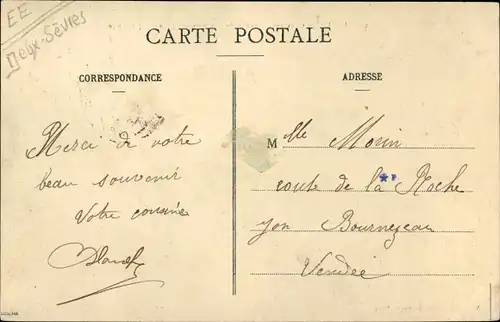 EE
Deux-Sèvres
CARTE POSTALE
CORRESPONDANCE
ADRESSE
Merci de votre
beau souvenir
Votre cousine
Mlle Morin
route de la Roche
yon Bournezeau
Vendée